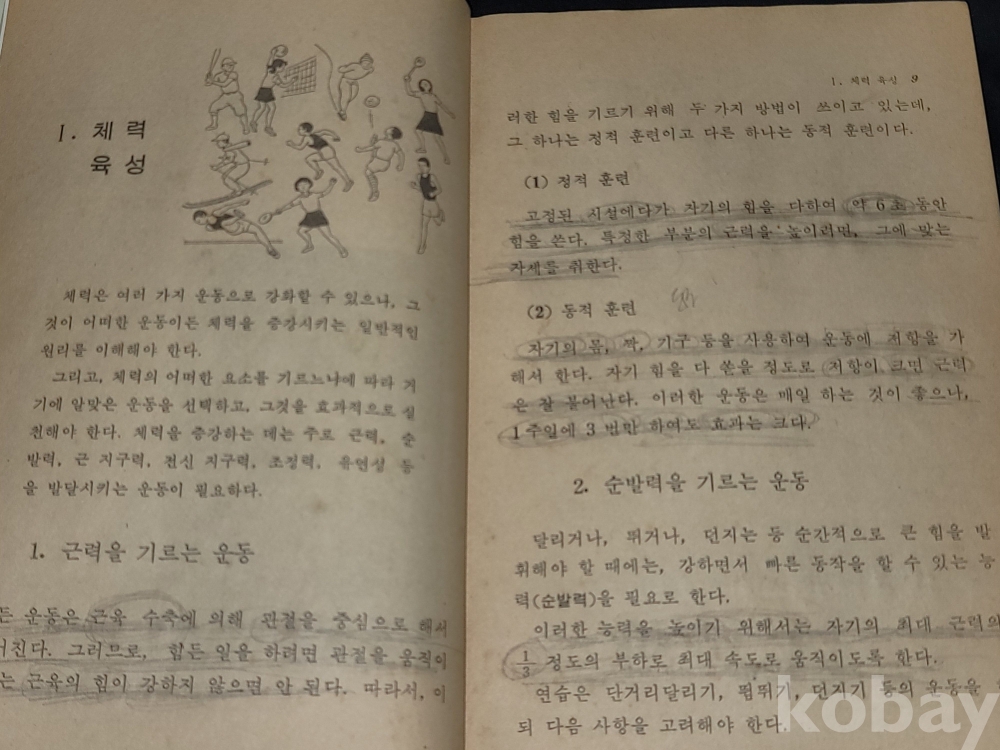 I. 체 력
육 성
체력은 여러 가지 운동으로 강화할 수 있으나, 그
것이 어떠한 운동이든 체력을 증강시키는 일반적인
원리를 이해해야 한다.
그리고, 체력의 어떠한 요소를 기르느냐에 따라 거
기에 알맞은 운동을 선택하고, 그것을 효과적으로 실
천해야 한다. 체력을 증강하는 데는 주로 근력, 순
발력, 근 지구력, 전신 지구력, 조정력, 유연성 등
을 발달시키는 운동이 필요하다.
1. 근력을 기르는 운동
든 운동은 근육 수축에 의해 관절을 중심으로 해서
어진다. 그러므로, 힘든 일을 하려면 관절을 움직이
는 근육의 힘이 강하지 않으면 안 된다. 따라서, 이
I. 체력 육성 9
러한 힘을 기르기 위해 두 가지 방법이 쓰이고 있는데,
그 하나는 정적 훈련이고 다른 하나는 동적 훈련이다.
(1) 정적 훈련
고정된 시설에다가 자기의 힘을 다하여 약 6초 동안
힘을 쓴다. 특정한 부분의 근력을 높이려면, 그에 맞는
자세를 취한다.
(2) 동적 훈련
자기의 몸, 짝, 기구 등을 사용하여 운동에 저항을 가
해서 한다. 자기 힘을 다 쏟을 정도로 저항이 크면 근력
은 잘 불어난다. 이러한 운동은 매일 하는 것이 좋으나,
1주일에 3번만 하여도 효과는 크다.
2. 순발력을 기르는 운동
달리거나, 뛰거나, 던지는 등 순간적으로 큰 힘을 발
휘해야 할 때에는, 강하면서 빠른 동작을 할 수 있는 능
력(순발력)을 필요로 한다.
이러한 능력을 높이기 위해서는 자기의 최대 근력의
1/3 정도의 부하로 최대 속도로 움직이도록 한다.
연습은 단거리달리기, 뜀뛰기, 던지기 등의 운동을
되 다음 사항을 고려해야 한다.
kobay